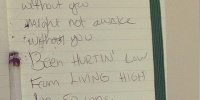 without you
might not awake
without you
BEEN HURTIN' Low
From LIVING HIGH